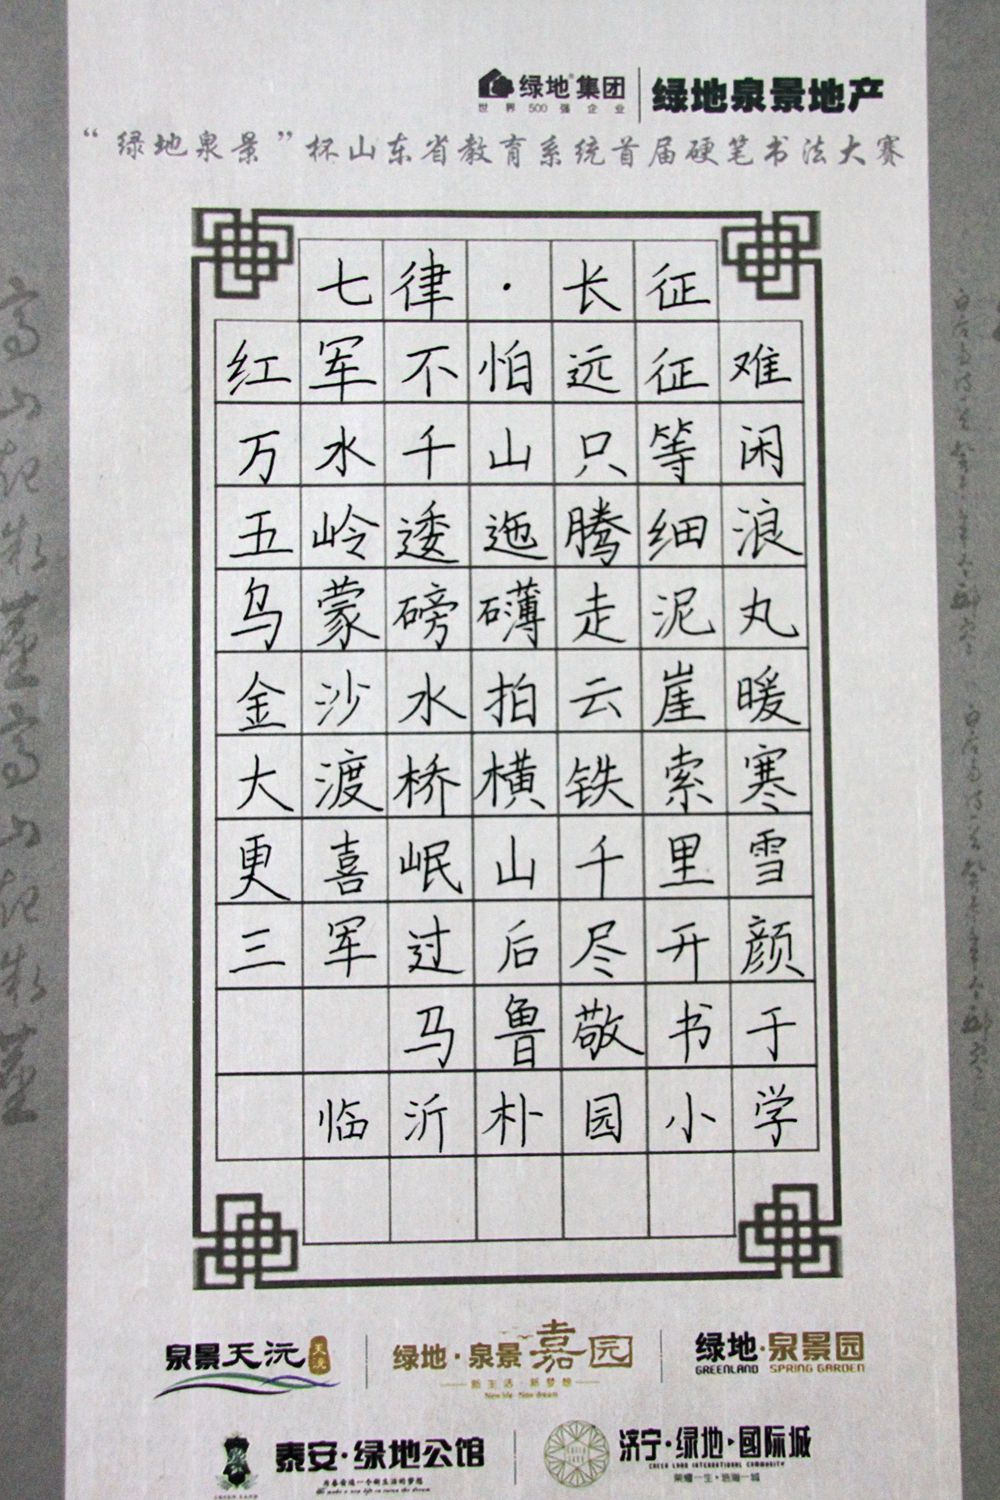 绿地集团 绿地泉景地产
世界500强企业
“绿地泉景”杯山东省教育系统首届硬笔书法大赛
七律·长征
红军不怕远征难
万水千山只等闲
五岭逶迤腾细浪
乌蒙磅礴走泥丸
金沙水拍云崖暖
大渡桥横铁索寒
更喜岷山千里雪
三军过后尽开颜
马鲁敬书于
临沂朴园小学
泉景天沅 天沅 绿地·泉景嘉园 绿地·泉景园
GREENLAND SPRING GARDEN
新生活 新梦想
New life New dream
泰安·绿地公馆 济宁·绿地·国际城
GREEN LAND INTERNATIONAL COMMUNITY